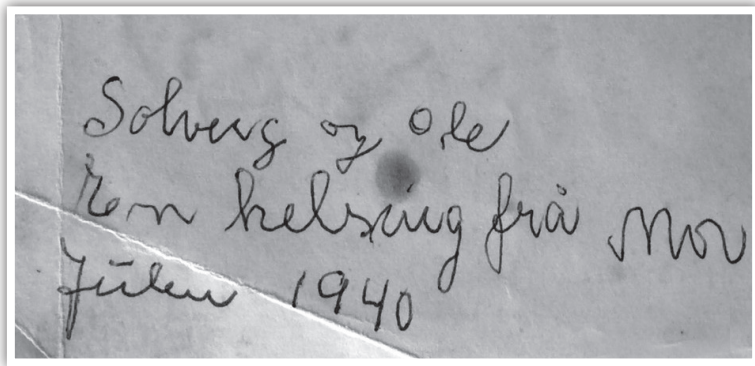 Solveig og Ole
En helsing frå Mor
Julen 1940